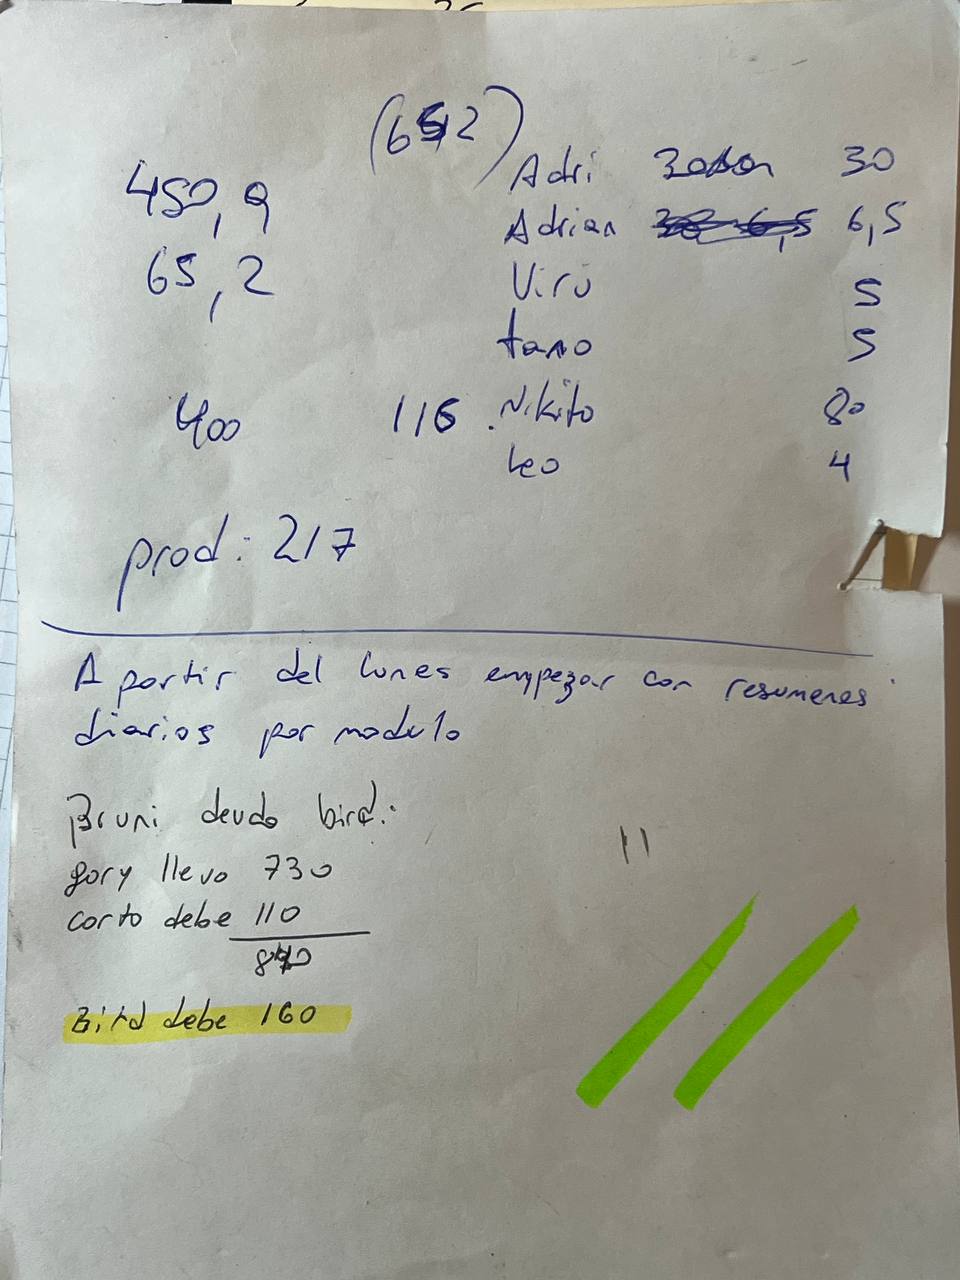 (652)
450,9
65,2
400
116
Adri 30
Adrian 6,5
Viru 5
tano 5
Nikito 80
Leo 4
prod: 217
A partir del lunes empezar con resumenes
diarios por modulo
Bruni deuda bird:
gory llevo 730
corto debe 110
840
Bird debe 160